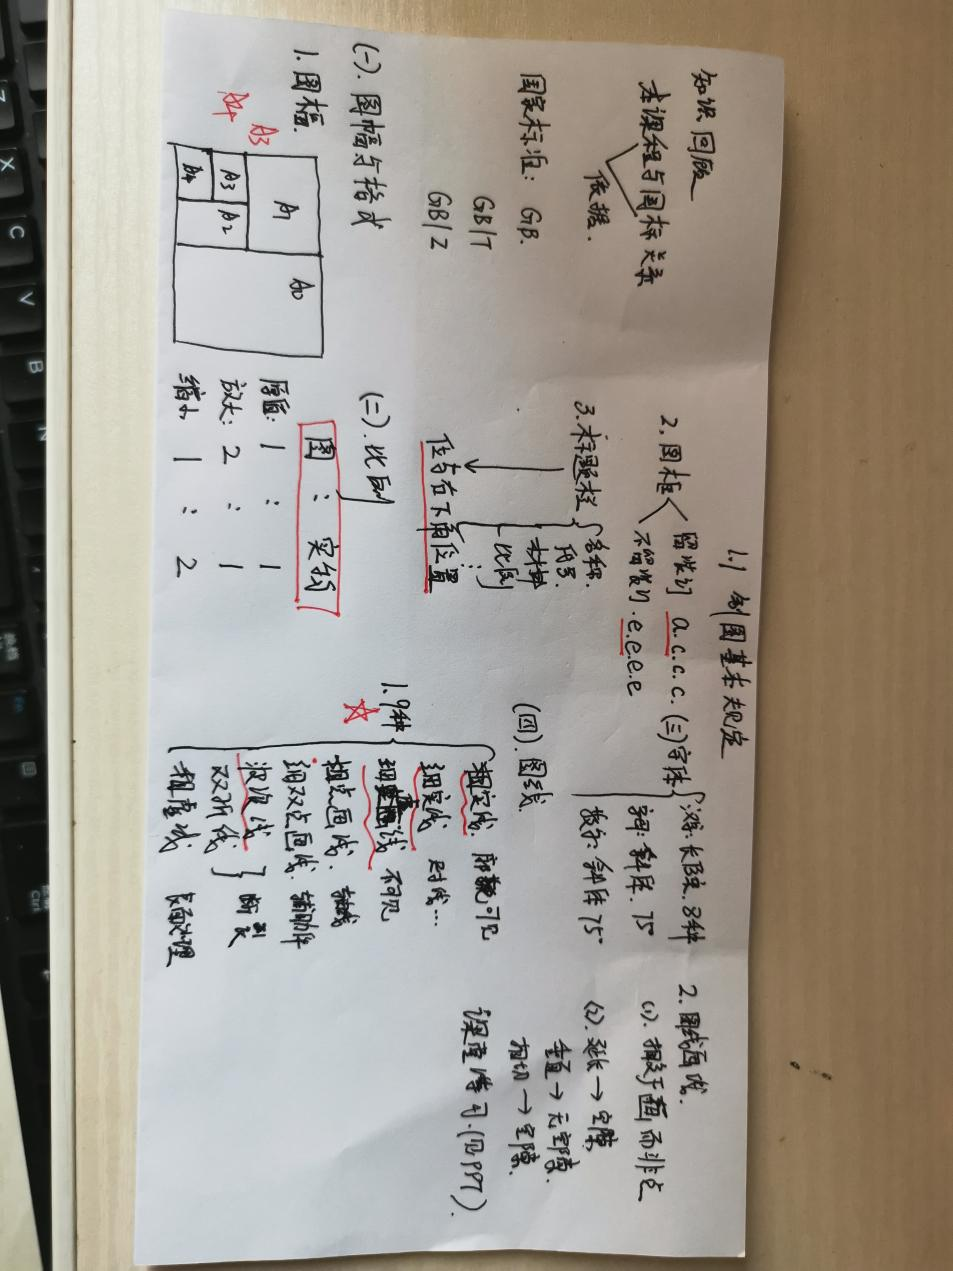 1.1 制图基本规定
知识回顾
本课程与国标关系
依据.
国家标准: GB.
GB/T
GB/Z
(一). 图幅与格式
1. 图幅.
A4 A3
A4 A3 A2 A1 A0
2. 图框
留装订 a.c.c.c.
不留装订. e.e.e.e
3. 标题栏
名称.
代号.
材料
比例
位与右下角位置
(二). 比例
图 : 实物
原值: 1 : 1
放大: 2 : 1
缩小 1 : 2
(三) 字体
汉: 长仿宋. 8种
字母: 斜体. 75°
数字: 斜体 75°
(四). 图线.
1. 9种
粗实线. 可见
细实线 尺寸线...
细虚线 不可见
粗点画线.
细双点画线. 辅助件
波浪线
双折线
断裂
粗虚线 表面处理
2. 图线画法.
(1). 相交于画而非点
(2). 延长 → 空隙
垂直 → 无空隙.
相切 → 空隙.
课堂练习. (见PPT).